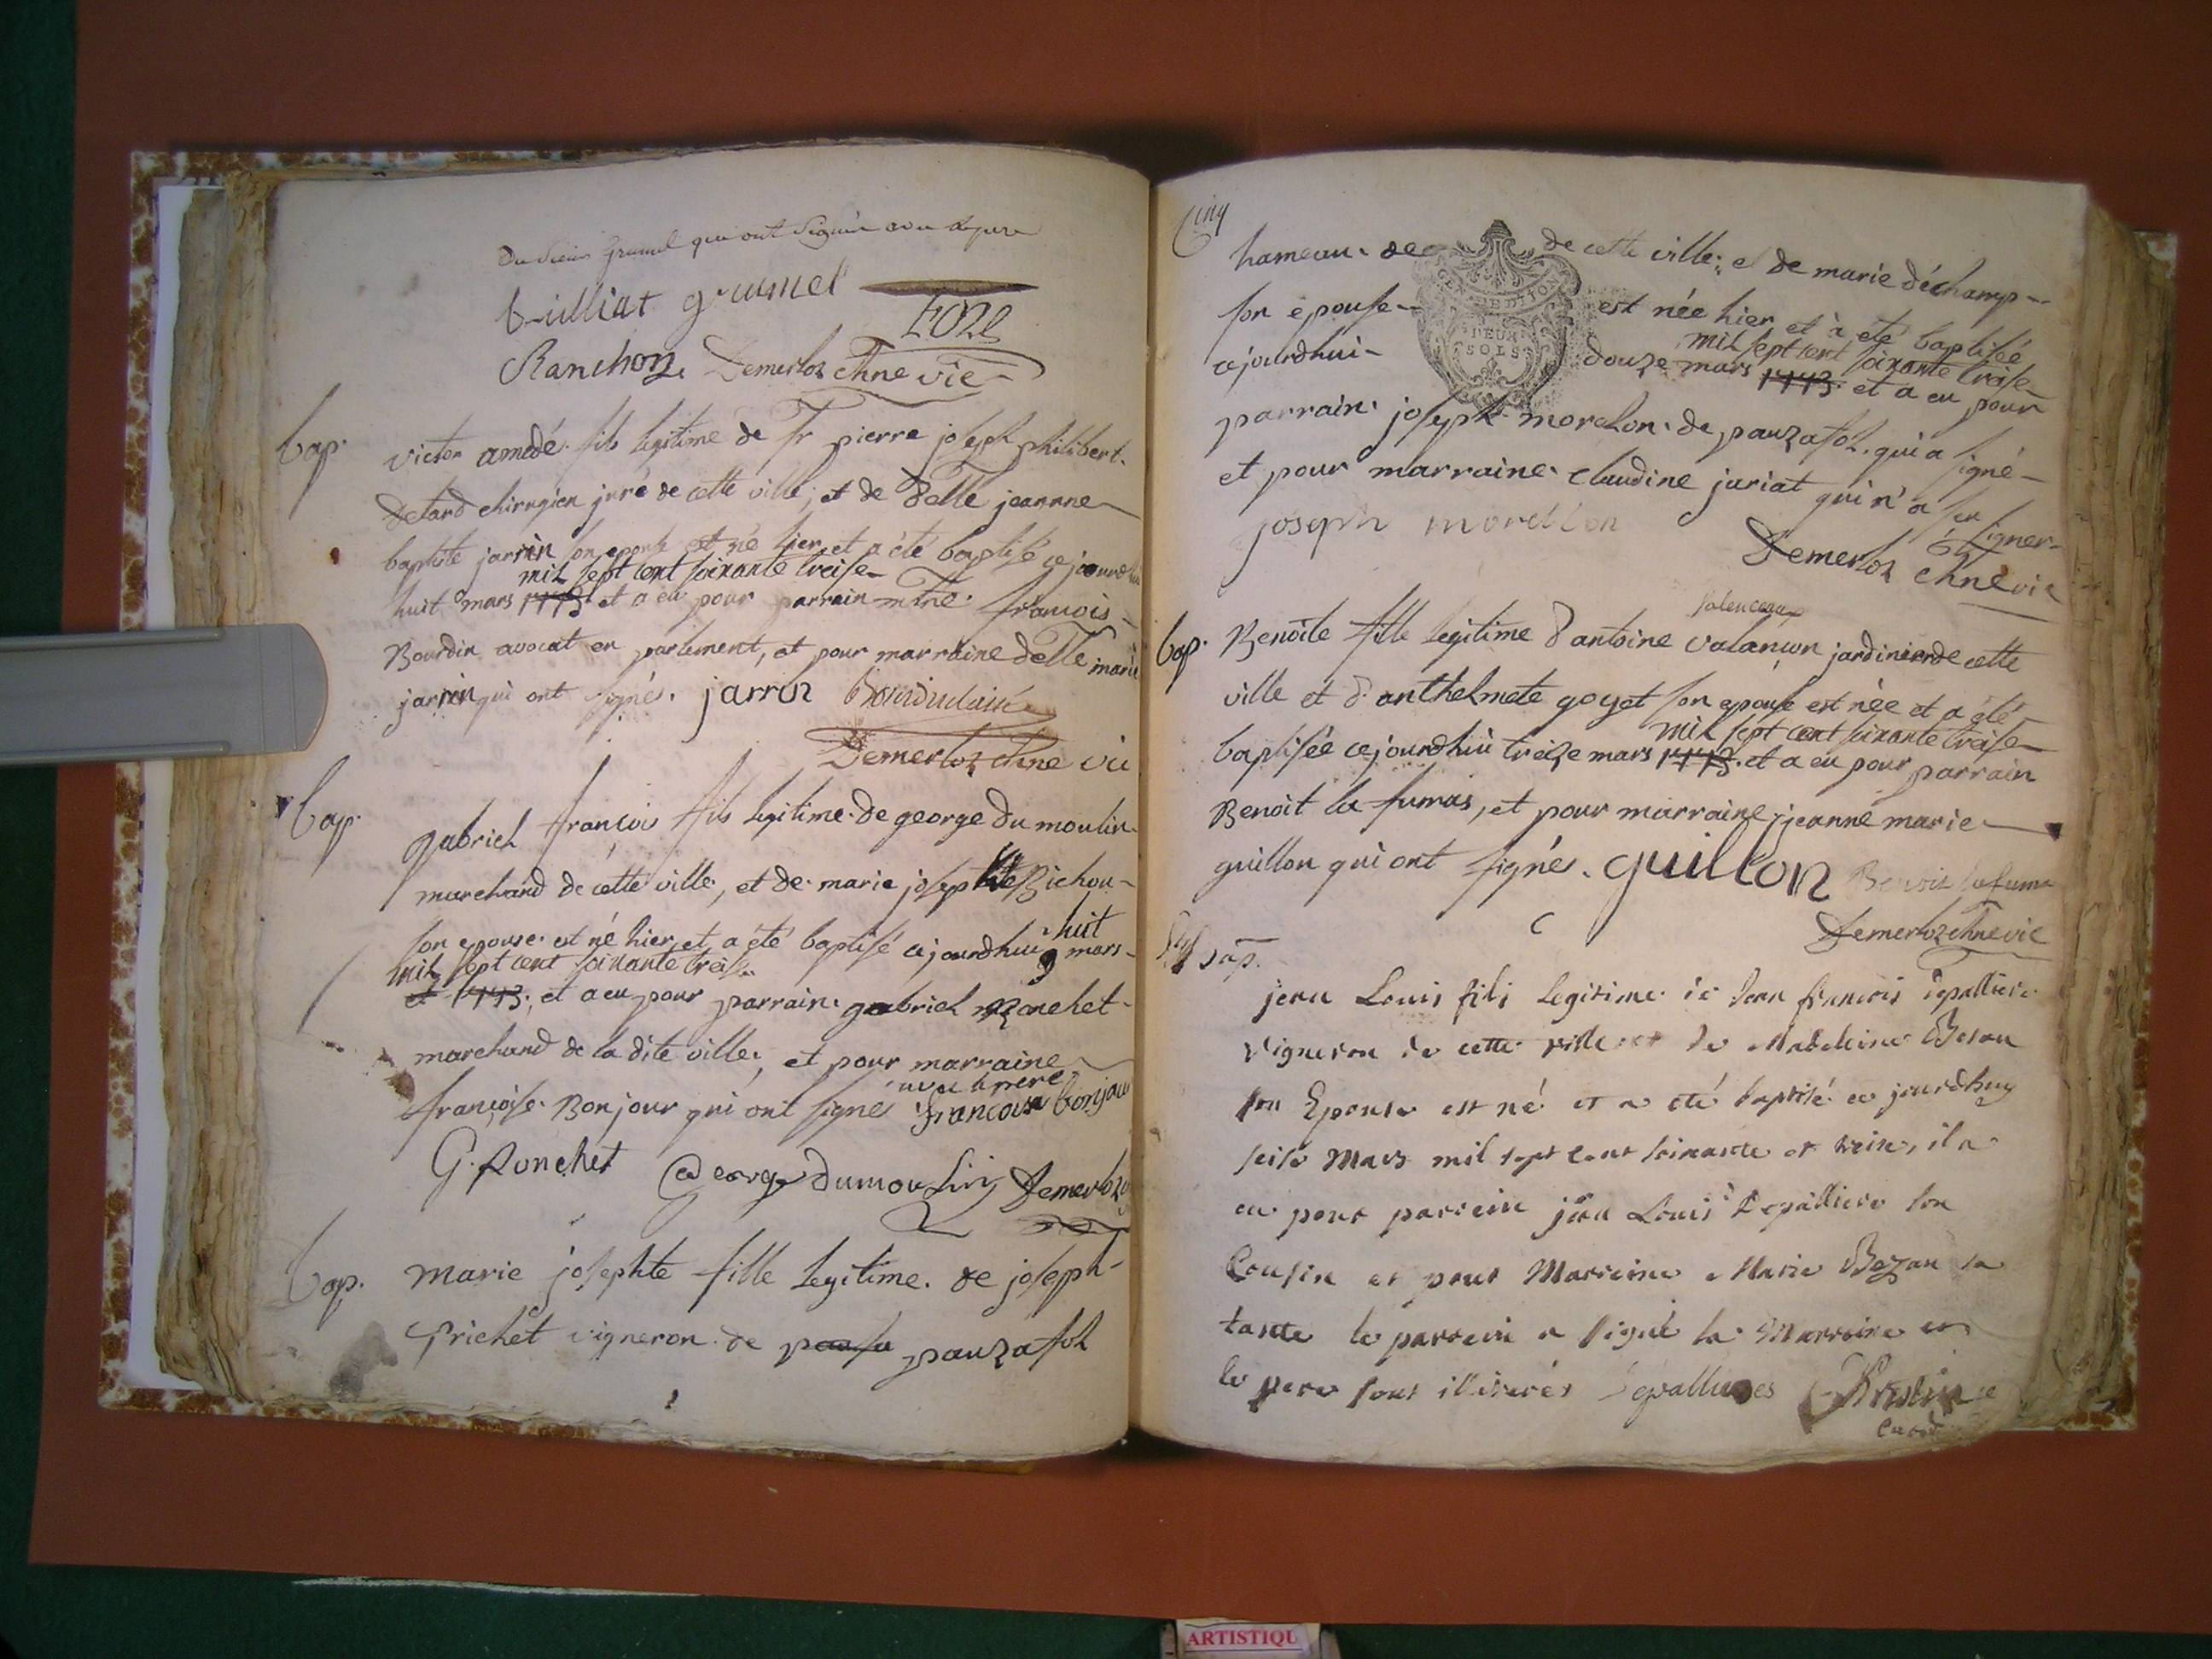 du sieur grumel qui ont signés avec le pere
Trilliat grumel
Roze
Ranchon Demerloz chne vic
bap. victor amedé fils legitime de Sr pierre joseph philibert
detard chirugien juré de cette ville, et de Delle jeannne
baptiste jarrin son epouse est né hier et a été baptisé cejourdhui
mil sept cent soixante treise
huit mars 1773 et a eu pour parrain mtre françois
Bourdin avocat en parlement, et pour marraine delle marie
jarrin qui ont signés. jarrin
Demerloz chne vic
bap. gabriel françois fils legitime de george du moulin
marchand de cette ville, et de marie josephte Bichon
son epouse est né hier et a été baptisé cejourdhui huit
9 mars
mil sept cent soixante treise
et 1773, et a eu pour parrain gabriel Ronchet
marchand de la dite ville, et pour marraine
avec le pere
françoise Bonjour qui ont signés francoise bonjour
G. Ronchet George dumoulin Demerloz
bap. marie josephte fille legitime de joseph
frichet vigneron de pausa pauzafol
Cinq
hameau de de cette ville, et de marie déchamp
son epouse est née hier et à eté baptisée
mil sept cent soixante treise
cejourdhui douze mars 1773 et a eu pour
parrain joseph morelon de pauzafol qui a signé
et pour marraine claudine juriat qui n'a seu signer
joseph morellon
Demerloz chne vic
GEN DEDITION
DEUX
SOLS
bap. Benoite fille legitime d'antoine valançon jardinier de cette
ville et d'anthelmete goyet son epouse est née et a été
mil sept cent soixante treise
baptisée cejourdhui treize mars 1773 et a eu pour parrain
Benoit la fumas, et pour marraine jeanne marie
guillon qui ont signés. guillon Benoit lafuma
Demerloz chne vic
bap.
jean Louis fils legitime de Jean francois depalliere
vigneron de cette ville et de Madeleine Bezan
son Epouse est né et a eté baptisé ce jourdhuy
seise Mars mil sept cent soixante et treise, il a
eu pour parrein jean Louis Depalliere son
Cousin et pour Marreine Marie Bezan sa
tante le parrein a signé la Marreine et
le pere sont illiterés depallieres